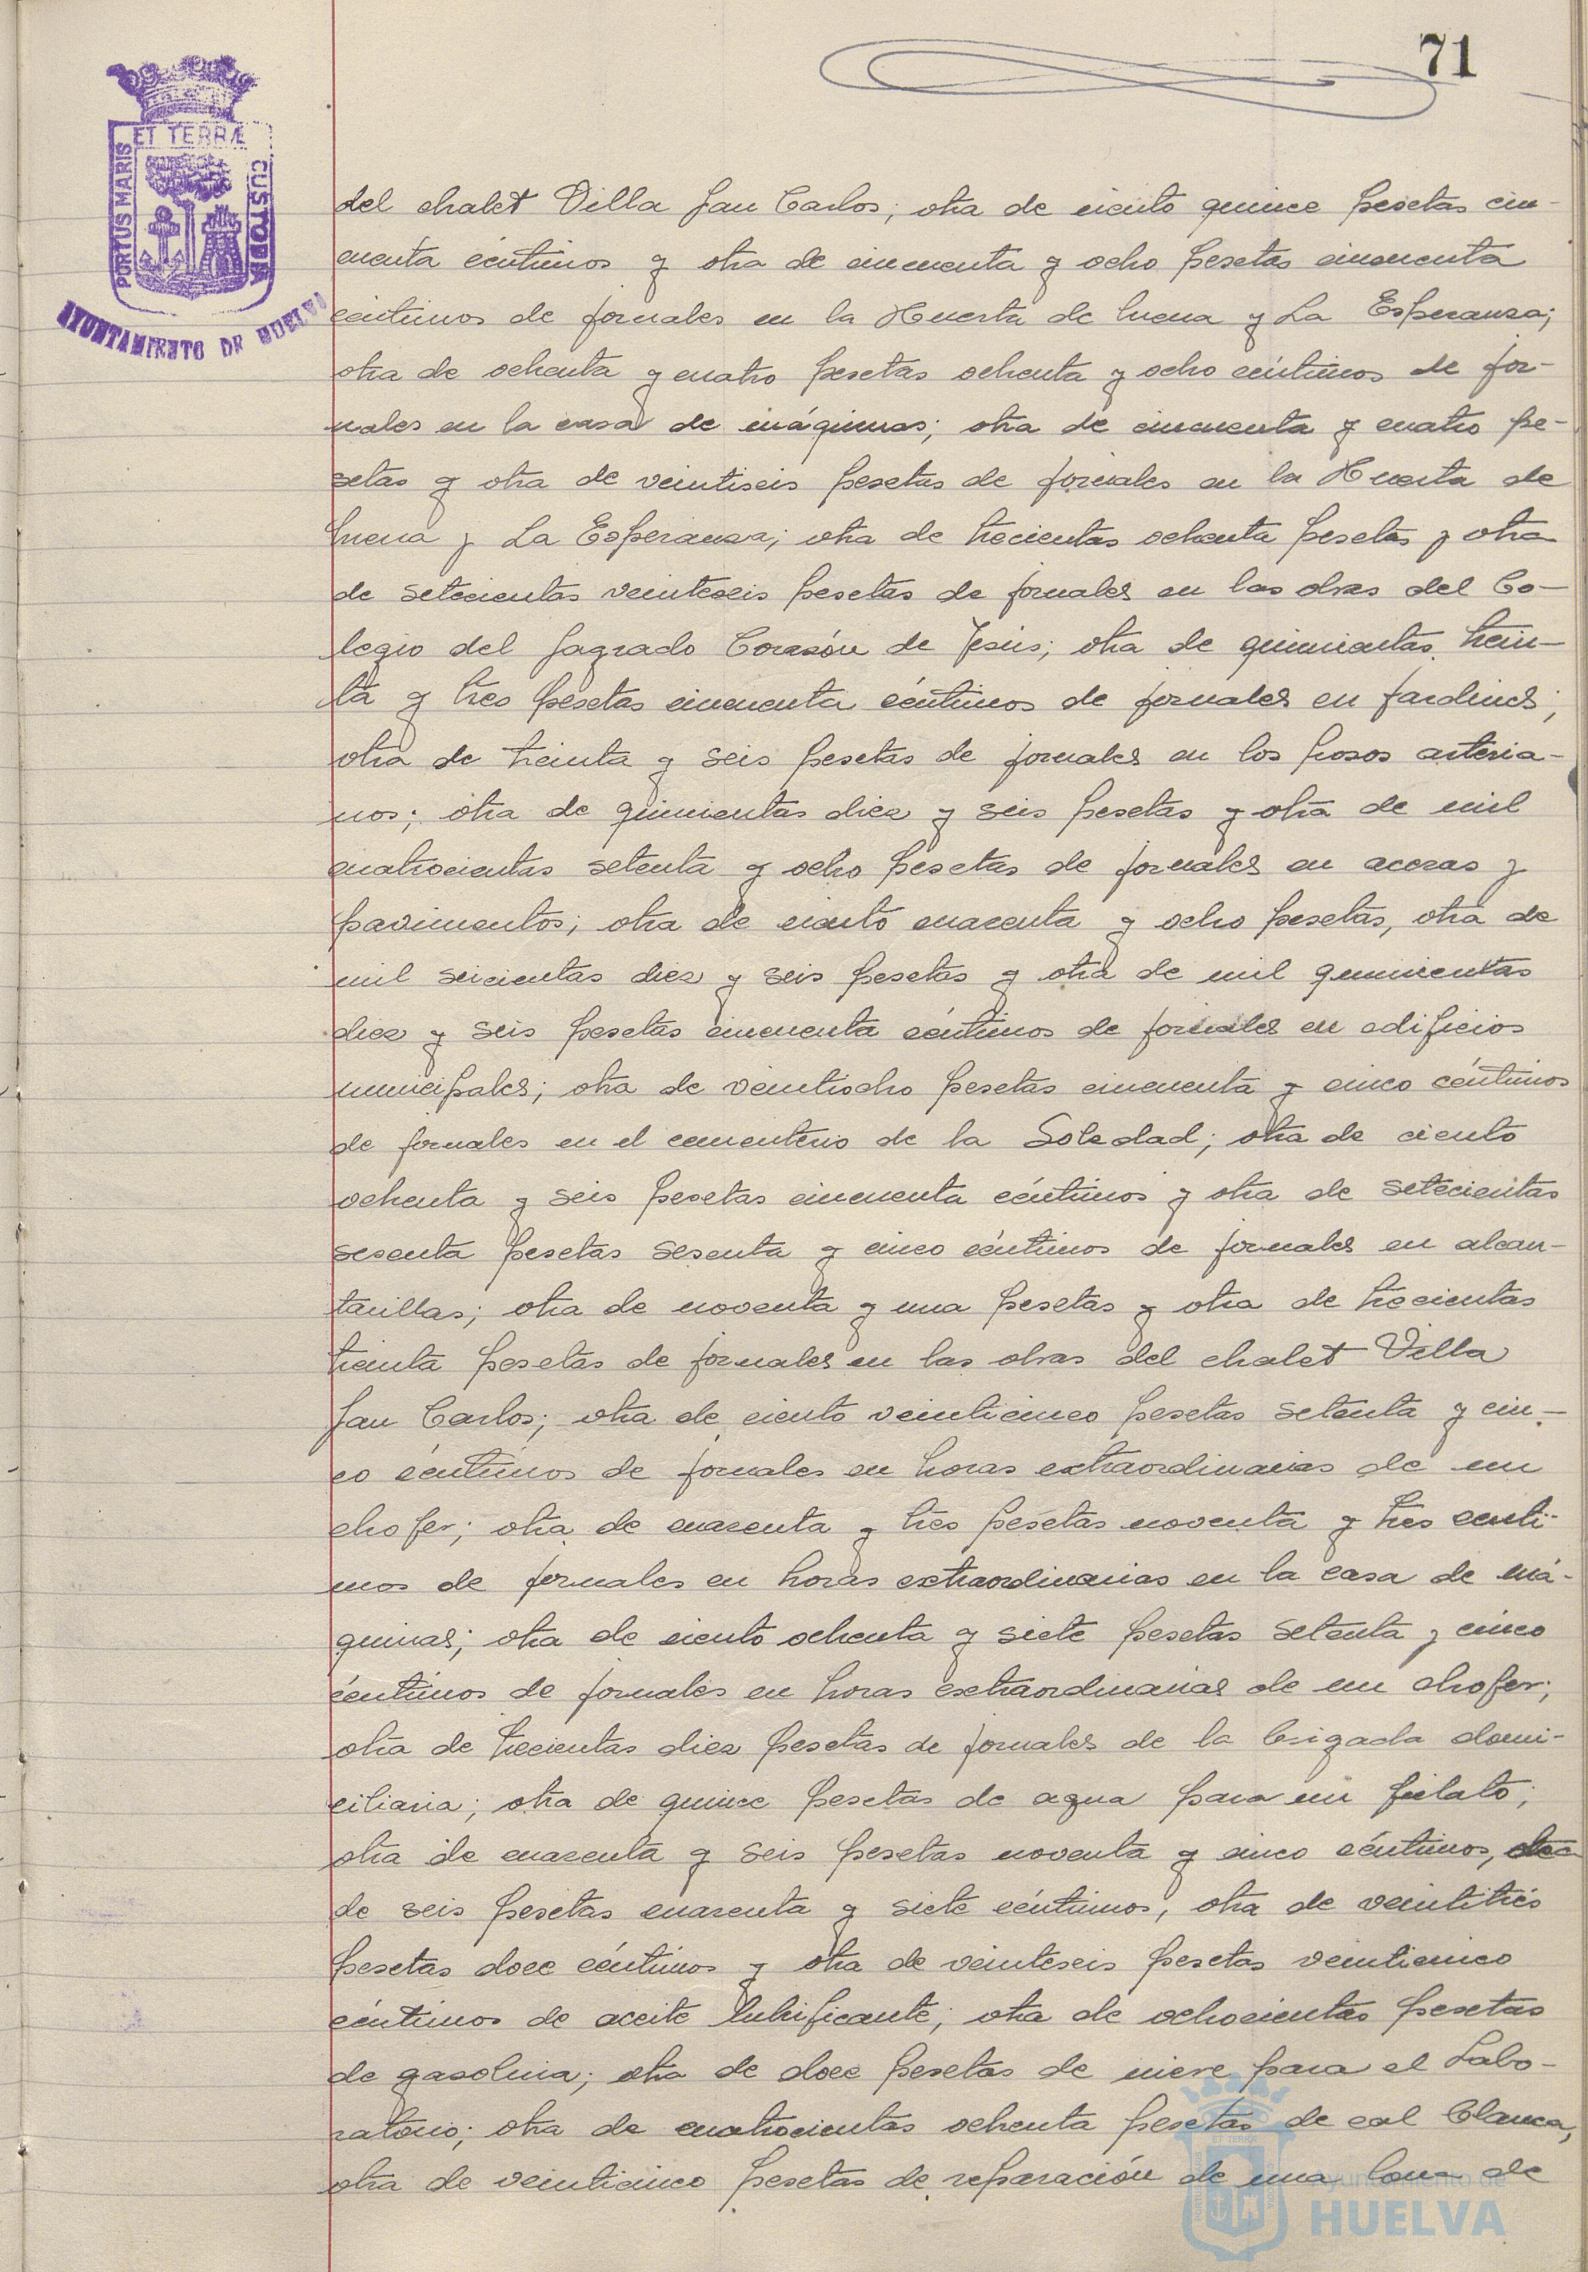 71
ET TERRÆ
PORTUS MARIS
CUSTODIA
AYUNTAMIENTO DE HUELVA
del chalet Villa San Carlos; otra de ciento quince pesetas cin-
cuenta céntimos y otra de cincuenta y ocho pesetas cincuenta
céntimos de jornales en la Huerta de Mena y La Esperanza;
otra de ochenta y cuatro pesetas ochenta y ocho céntimos de jor-
nales en la casa de máquinas; otra de cincuenta y cuatro pe-
setas y otra de veintiseis pesetas de jornales en la Huerta de
Mena y La Esperanza; otra de trecientas ochenta pesetas y otra
de setecientas veinteseis pesetas de jornales en las obras del Co-
legio del Sagrado Corazón de Jesús; otra de quinientas trein-
ta y tres pesetas cincuenta céntimos de jornales en jardines;
otra de treinta y seis pesetas de jornales en los pozos artesia-
nos; otra de quinientas diez y seis pesetas y otra de mil
cuatrocientas setenta y ocho pesetas de jornales en aceras y
pavimentos; otra de ciento cuarenta y ocho pesetas, otra de
mil seicientas diez y seis pesetas y otra de mil quinientas
diez y seis pesetas cincuenta céntimos de jornales en edificios
municipales; otra de veintiocho pesetas cincuenta y cinco céntimos
de jornales en el cementerio de la Soledad; otra de ciento
ochenta y seis pesetas cincuenta céntimos y otra de setecientas
sesenta pesetas sesenta y cinco céntimos de jornales en alcan-
tarillas; otra de noventa y una pesetas y otra de trecientas
treinta pesetas de jornales en las obras del chalet Villa
San Carlos; otra de ciento veinticinco pesetas setenta y cin-
co céntimos de jornales en horas extraordinarias de un
chofer; otra de cuarenta y tres pesetas noventa y tres centi-
mos de jornales en horas extraordinarias en la casa de má-
quinas; otra de ciento ochenta y siete pesetas setenta y cinco
céntimos de jornales en horas extraordinarias de un chofer;
otra de trecientas diez pesetas de jornales de la brigada domi-
ciliaria; otra de quince pesetas de agua para un fielato;
otra de cuarenta y seis pesetas noventa y cinco céntimos, otra
de seis pesetas cuarenta y siete céntimos, otra de veintitrés
pesetas doce céntimos y otra de veinteseis pesetas veinticinco
céntimos de aceite lubrificante; otra de ochocientas pesetas
de gasolina; otra de doce pesetas de nieve para el Labo-
ratorio; otra de cuatrocientas ochenta pesetas de cal blanca,
otra de veinticinco pesetas de reparación de una lona de
Ayuntamiento de
HUELVA